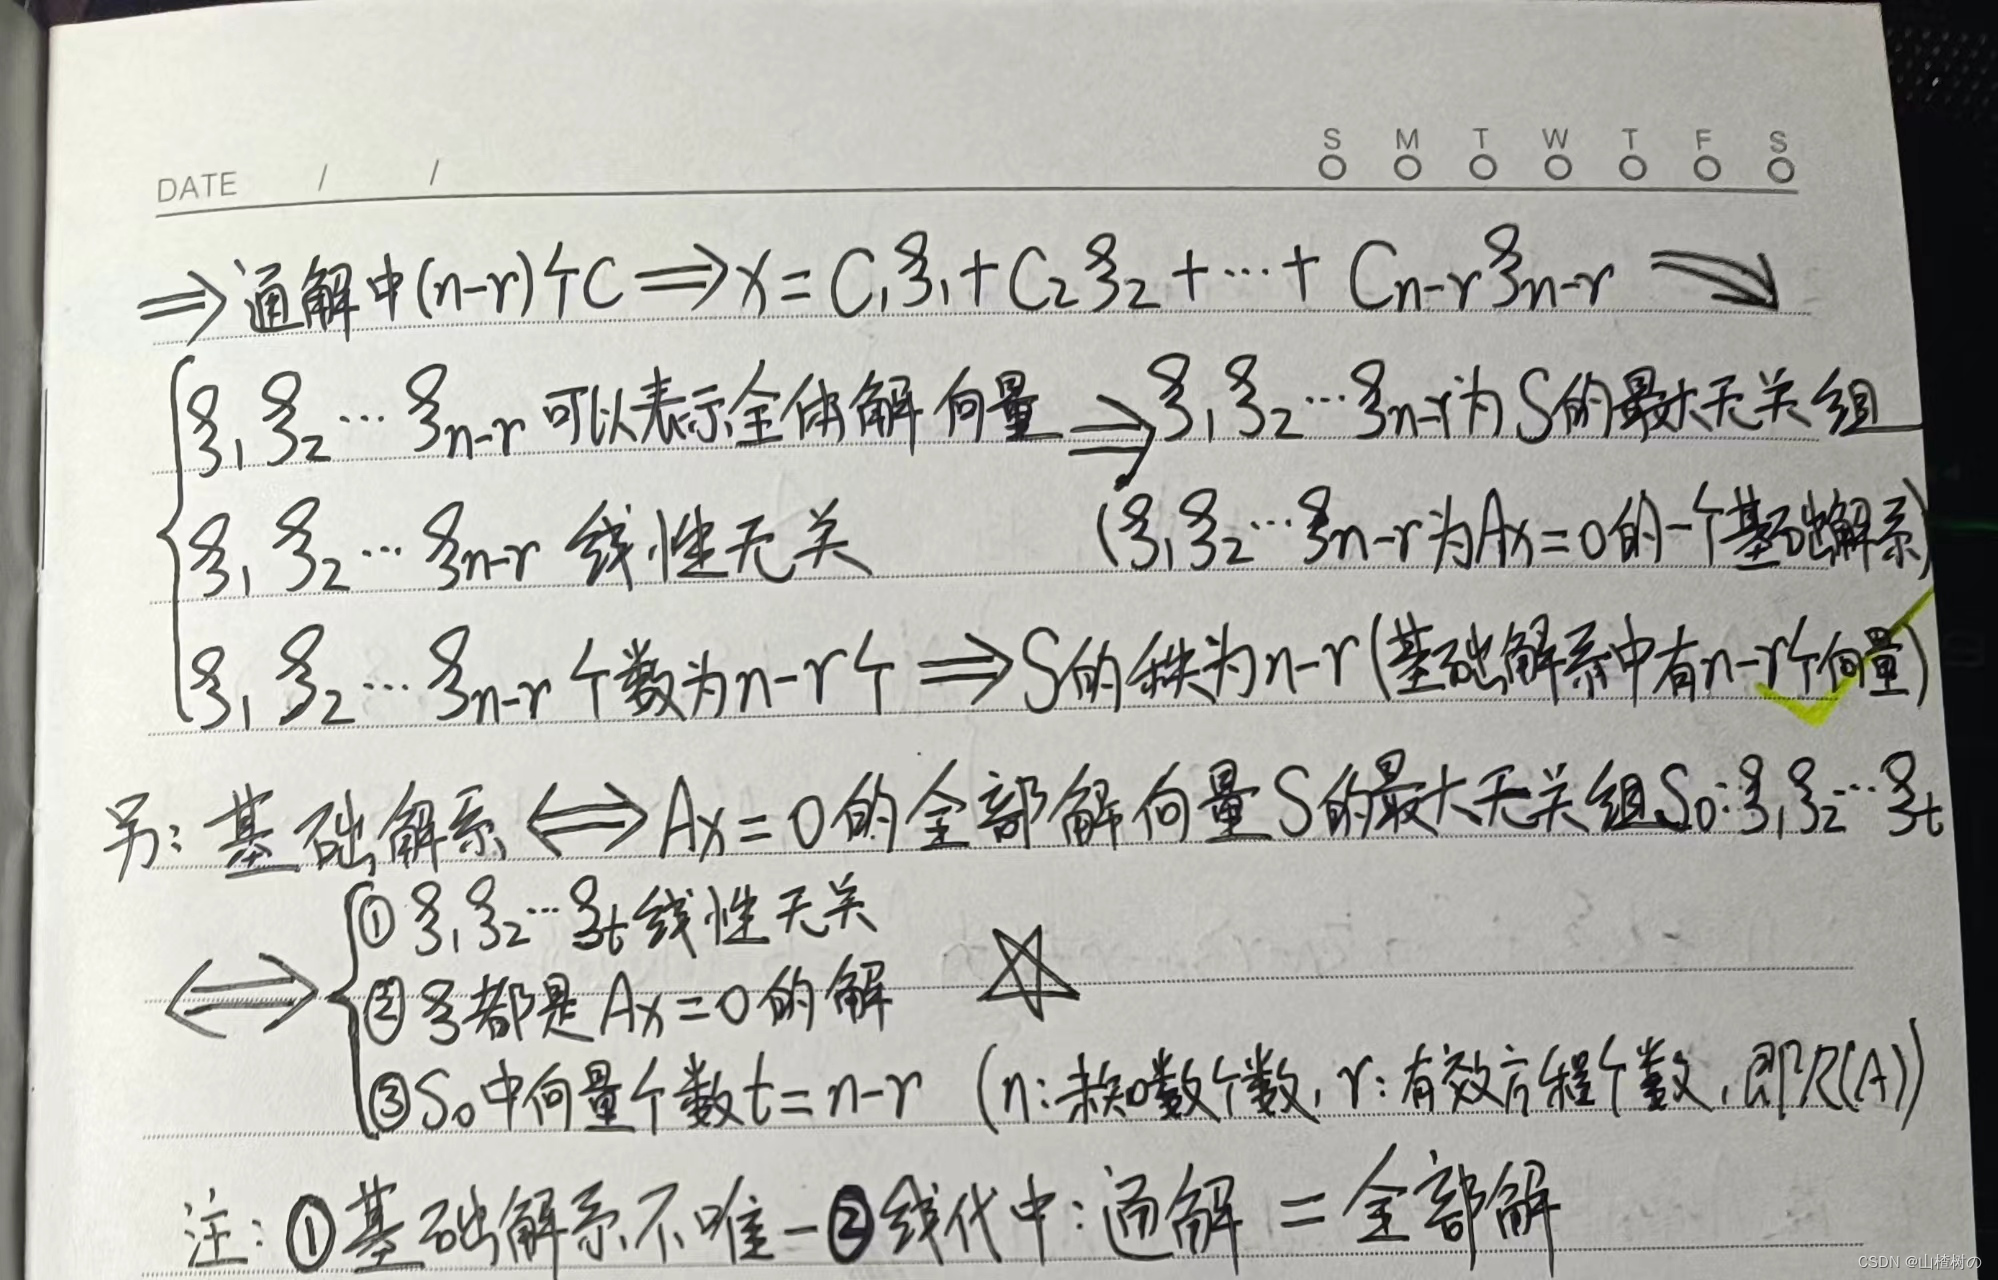 S M T W T F S
DATE / /
⇒通解中(n-r)个C⇒x=C₁ξ₁+C₂ξ₂+…+Cn-rξn-r
ξ₁,ξ₂…ξn-r可以表示全体解向量⇒ξ₁,ξ₂…ξn-r为S的最大无关组
ξ₁,ξ₂…ξn-r线性无关 (ξ₁,ξ₂…ξn-r为Ax=0的一个基础解系)
ξ₁,ξ₂…ξn-r个数为n-r个⇒S的秩为n-r(基础解系中有n-r个向量)
另:基础解系⇔Ax=0的全部解向量S的最大无关组S₀:ξ₁,ξ₂…ξt
①ξ₁,ξ₂…ξt线性无关
⇔②ξ都是Ax=0的解 ☆
③S₀中向量个数t=n-r (n:未知数个数,r:有效方程个数,即R(A))
注:①基础解系不唯一②线代中:通解=全部解
CSDN @山楂树の